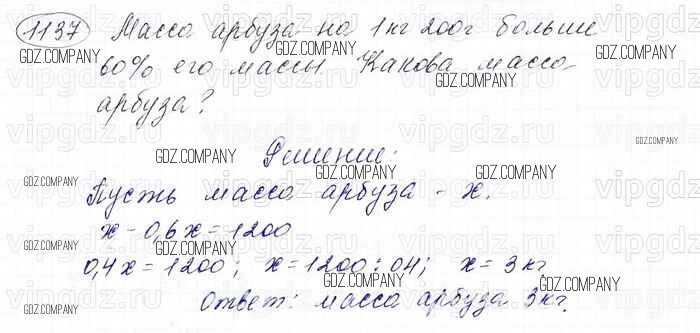 1137 Масса арбуза на 1кг 200г больше
60% его массы. Какова масса
арбуза?
Решение:
Пусть масса арбуза - х.
х - 0,6х = 1200
0,4х = 1200; х = 1200 : 04; х = 3 кг.
Ответ: масса арбуза 3кг.
GDZ.COMPANY
vipgdz.ru